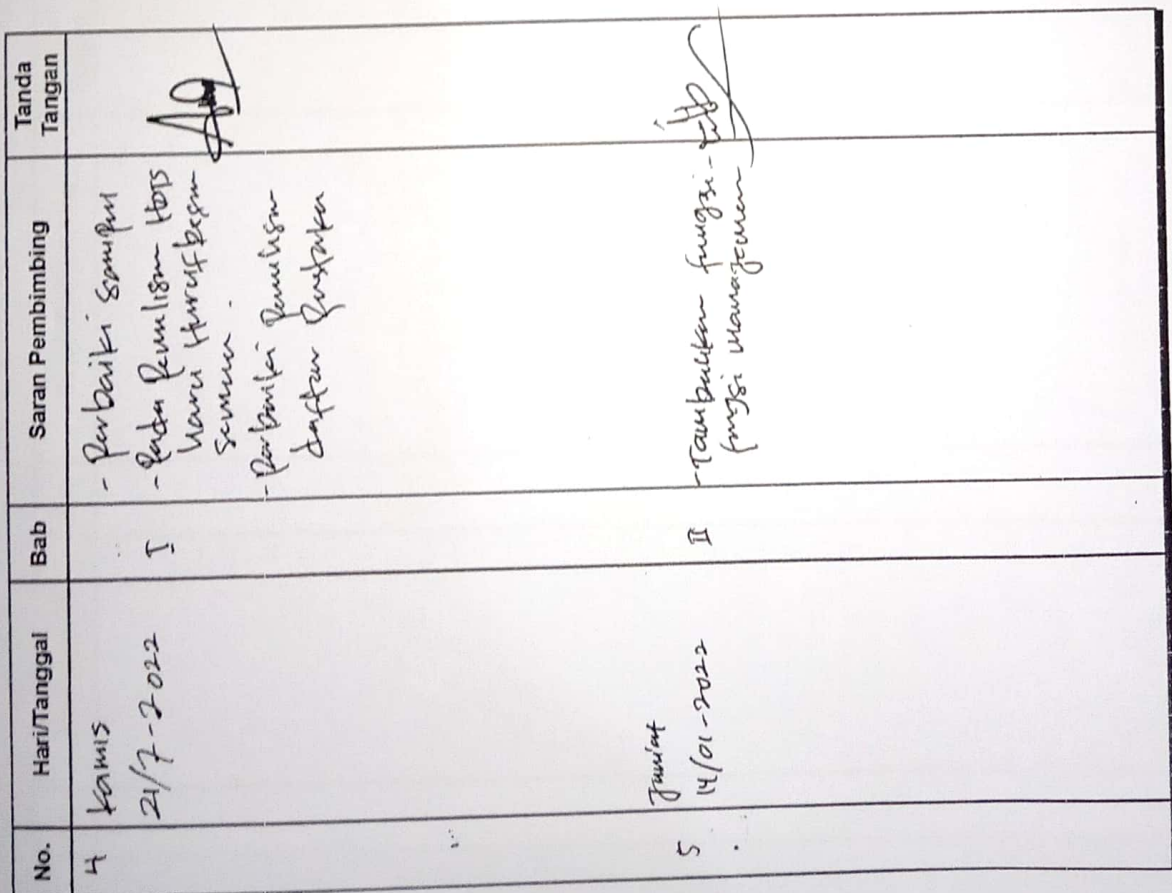 No. Hari/Tanggal Bab Saran Pembimbing Tanda Tangan
4 Kamis
21/7-2022
I
- Perbaiki Sampul
- Pada Penulisan HOTS
harus Huruf besar
semua.
- Perbaiki Penulisan
daftar Pustaka
5
Jum'at
14/01-2022
II
- Tambahkan fungsi-
fungsi manajemen